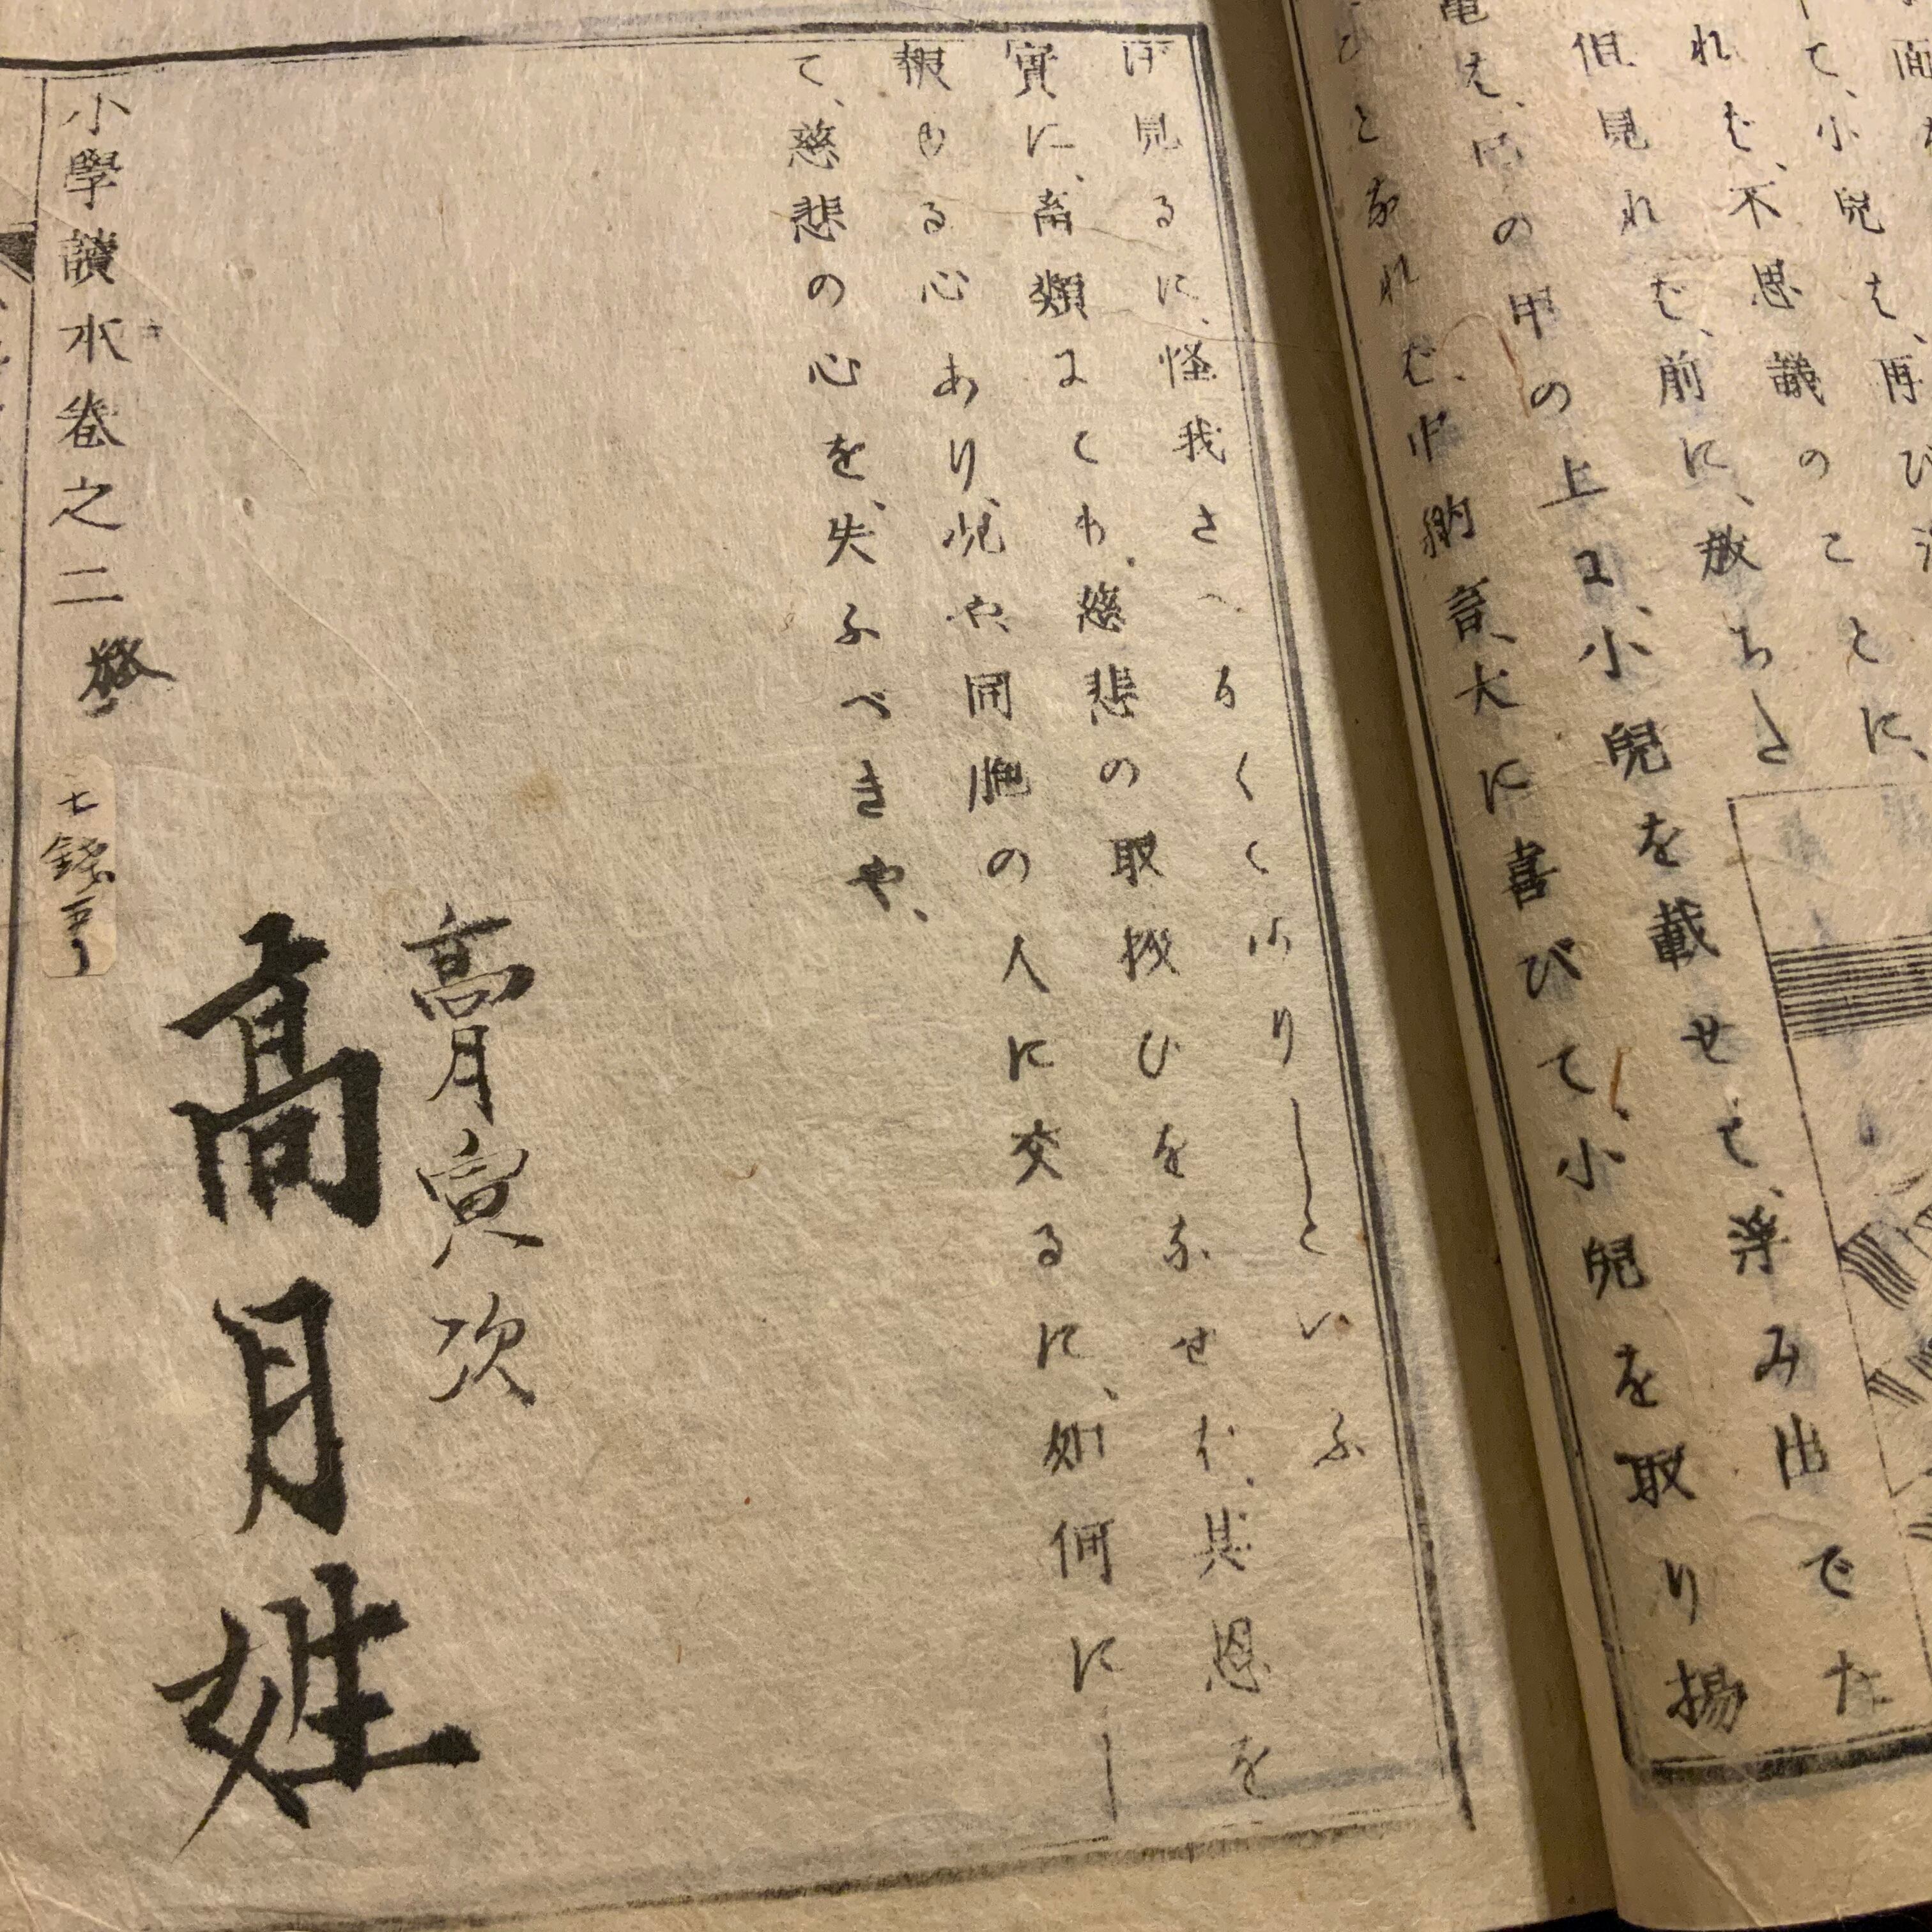 て、小兒は、再び
れば、不思議のことに、
但見れば、前に、放ちさ
亀は、甲の上に、小兒を載せて、浮み出でた
びとなれば、中納言、大に喜びて、小兒を取り揚
け見るに、怪我さへなくてありしといふ
實に、畜類にても、慈悲の取扱ひをなせば、其恩を
報ゆる心あり、况や、同胞の人に交るに、如何にし
て、慈悲の心を、失ふべきや、
髙月寅次
髙月姓
小學讀本卷之二終
七錢五り